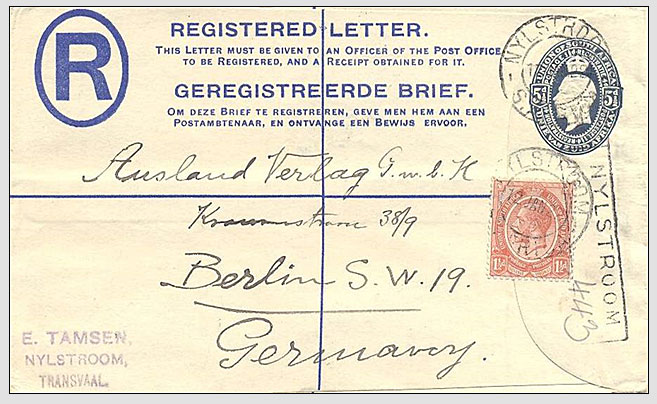 R
REGISTERED LETTER.
THIS LETTER MUST BE GIVEN TO AN OFFICER OF THE POST OFFICE
TO BE REGISTERED, AND A RECEIPT OBTAINED FOR IT.
GEREGISTREERDE BRIEF.
OM DEZE BRIEF TE REGISTREREN, GEVE MEN HEM AAN EEN
POSTAMBTENAAR, EN ONTVANGE EEN BEWIJS ERVOOR.
NYLSTROOM
5½ 5½
Ausland Verlag G.m.b.H
38/9
Berlin S.W. 19.
Germany.
NYLSTROOM
1½ 1½
NYLSTROOM
443
E. TAMSEN,
NYLSTROOM,
TRANSVAAL.